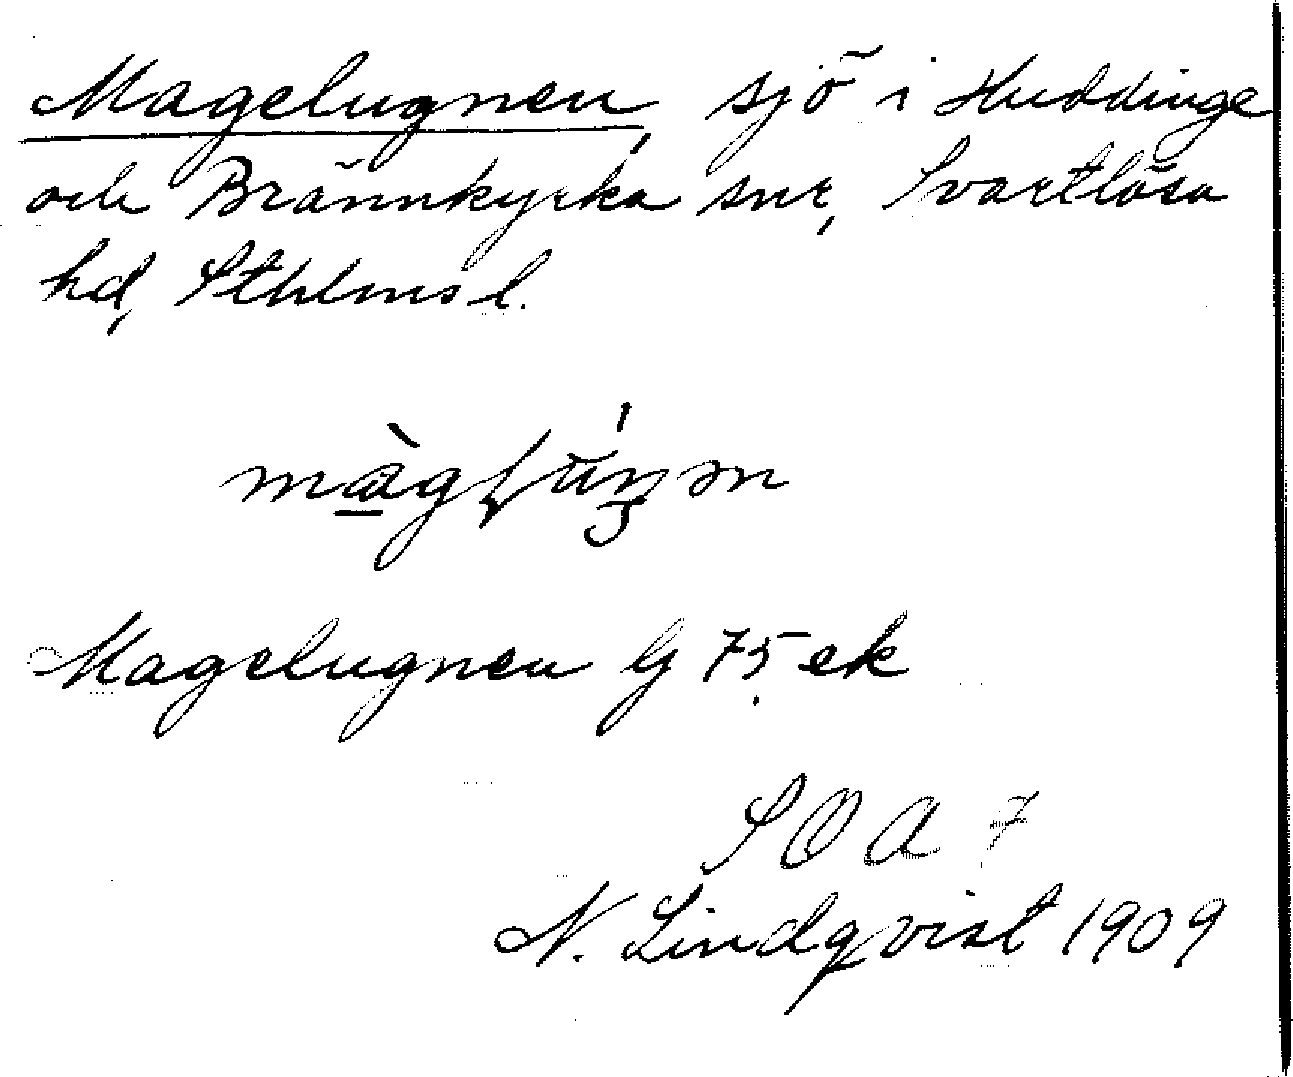 Magelugnen, sjö i Huddinge
och Brännkyrka snr, Svartlösa
hd, Sthlms l.
Magelugnen Gj 75 ek
SOA 7
N. Lindqvist 1909